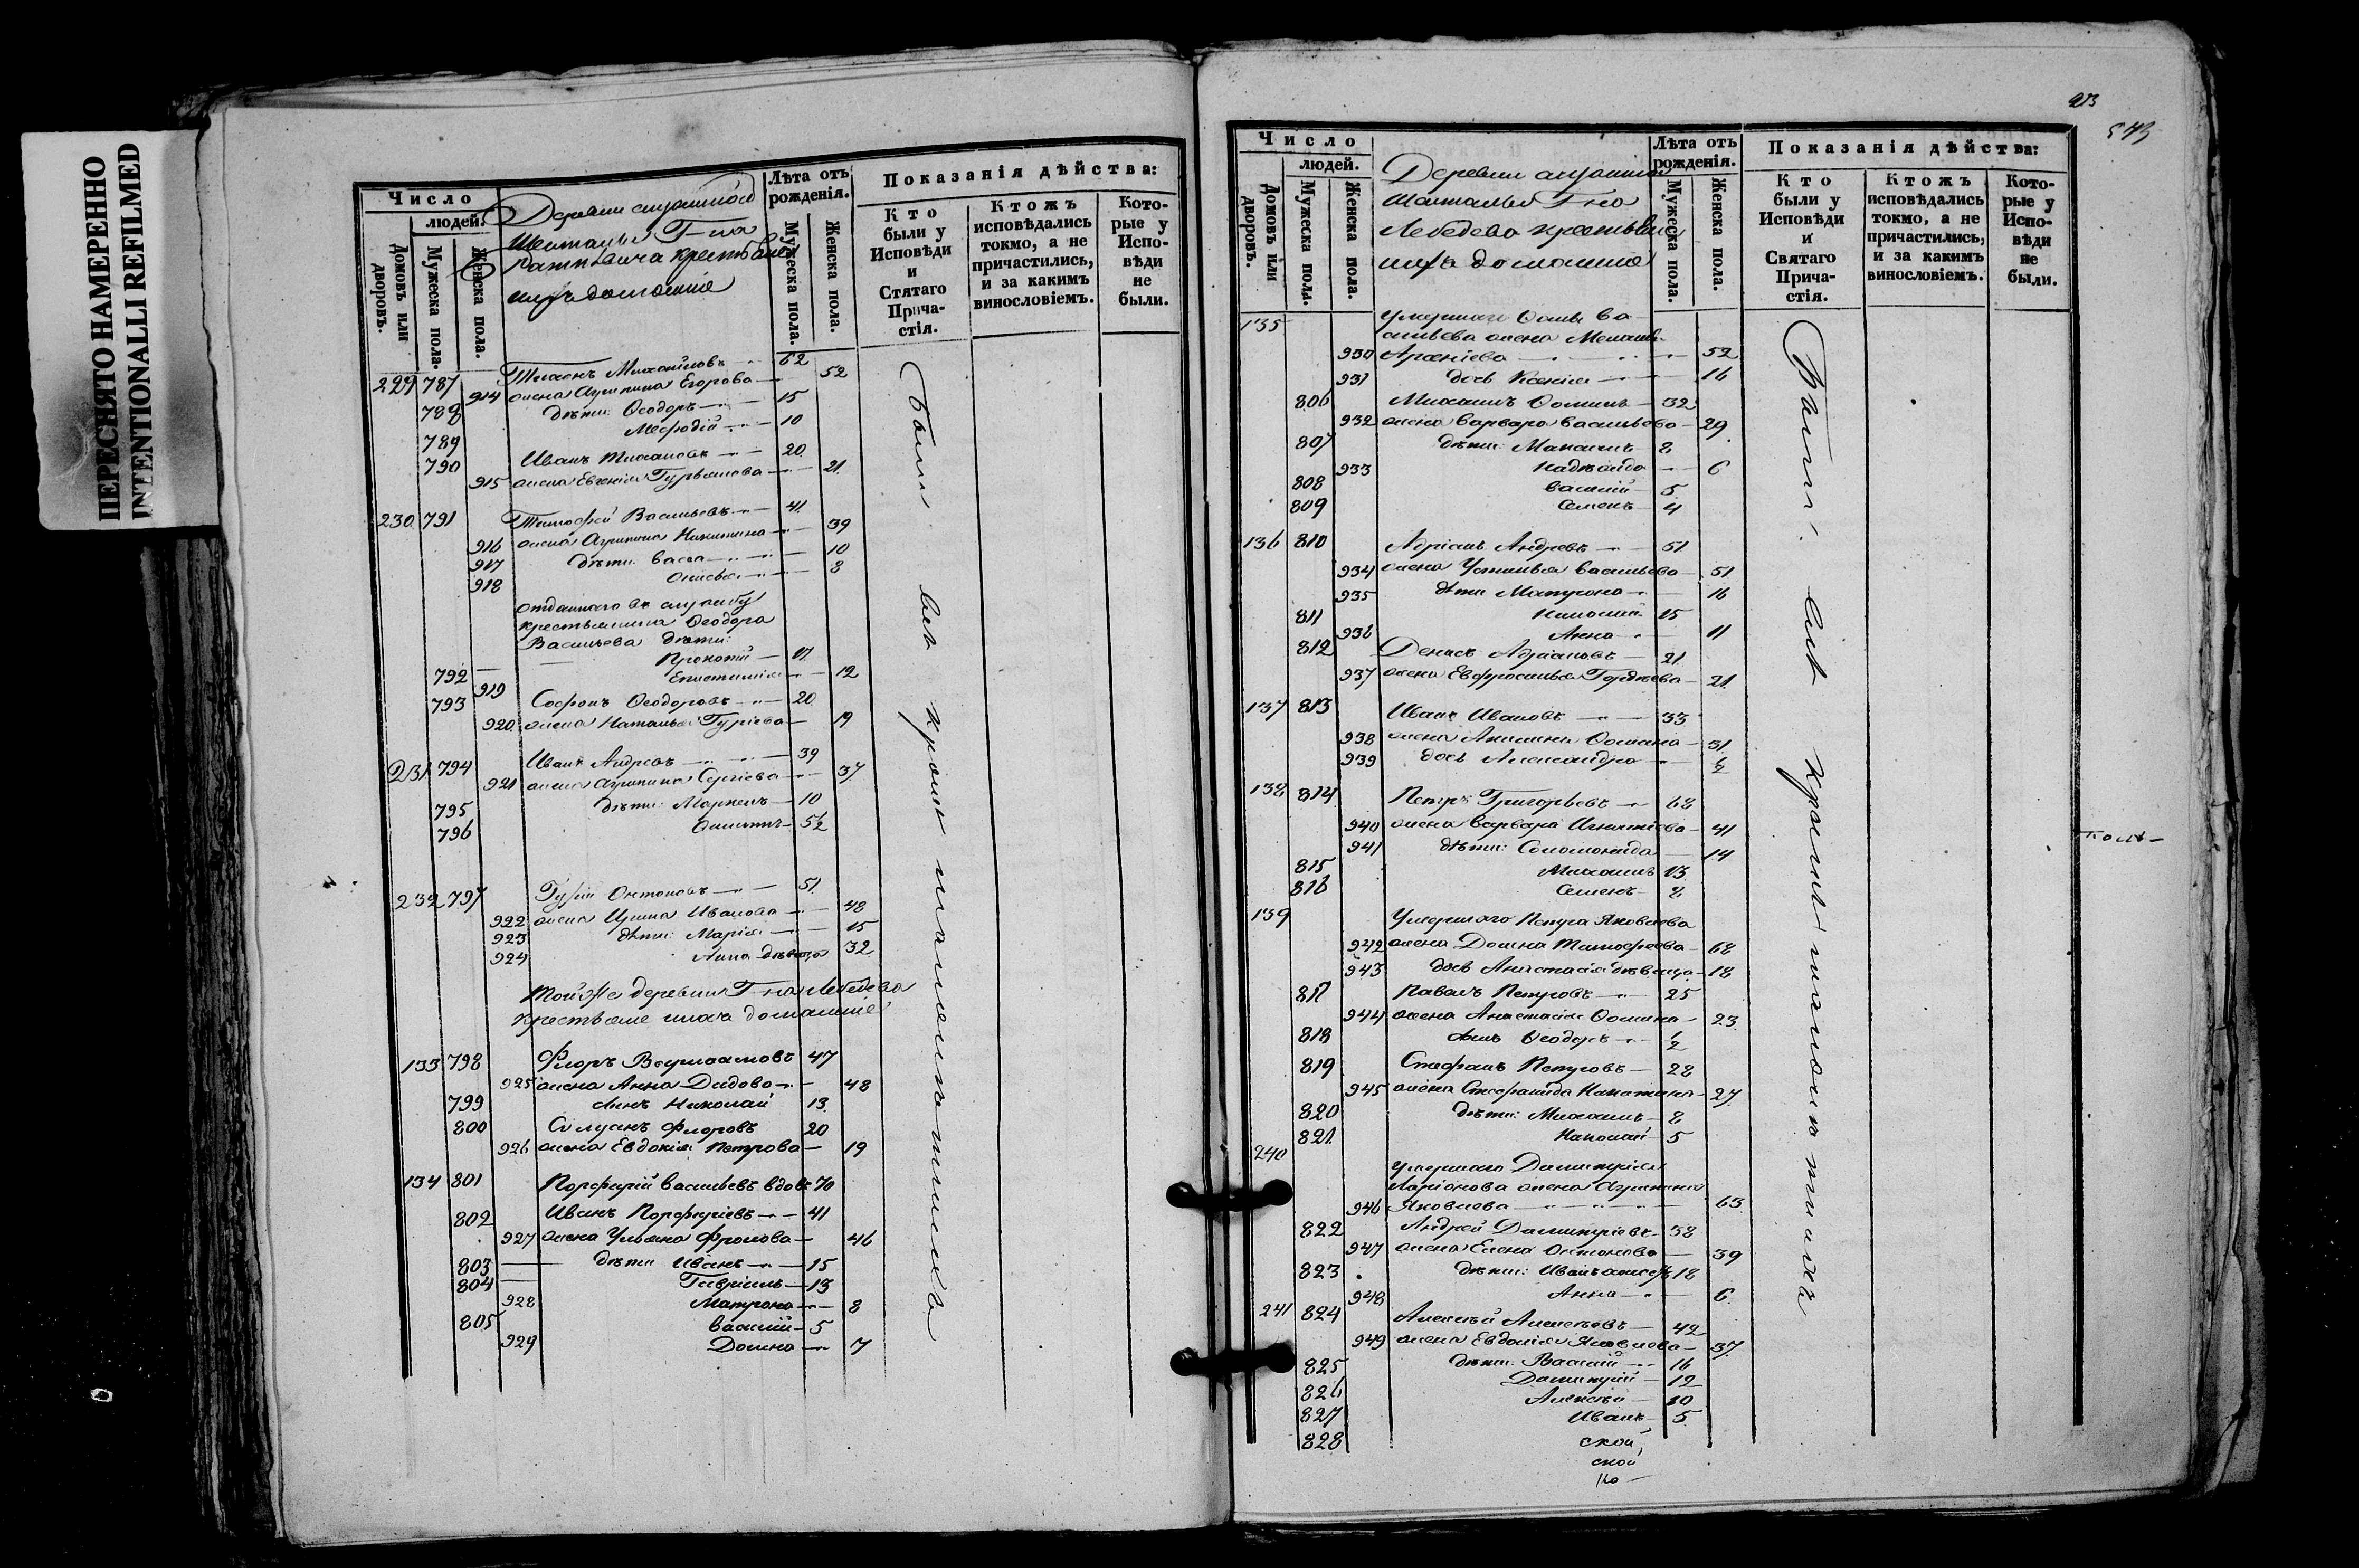 ПЕРЕСНЯТО НАМЕРЕННО
INTENTIONALLI REFILMED
Число
людей.
Домовъ или дворовъ.
Мужеска пола.
Женска пола.
Деревни
Г-на
крестьяне
ихъ домашніе
Лѣта отъ рожденія.
Мужеска пола.
Женска пола.
Показанія дѣйства:
Кто были у Исповѣди и Стятаго Прича- стія.
Ктожъ исповѣдались токмо, а не причастились, и за какимъ винословіемъ.
Кото- рые у Испо- вѣди не были.
229 787 Тихонъ Михайловъ 62
914 жена Агрипина Егорова 52
788 дѣти: Ѳеодоръ 15
789 Меѳодій 10
790 Иванъ Тихановъ 20
915 жена Евгенія Гурьянова 21
230 791 Тимофей Васильевъ 41
916 жена Агрипина Никитина 39
917 дѣти: Васса 10
918 Анисья 8
Отданнаго въ службу
крестьянина Ѳеодора
Васильева дѣти:
792 Прокопій 17
919 Епистимія 12
793 Софонъ Ѳеодоровъ 20
920 жена Наталья Гуріева 19
231 794 Иванъ Андреевъ 39
921 жена Агрипина Сергіева 37
795 дѣти: Маркелъ 10
796
232 797 Гурій Антоновъ 51
922 жена Ирина Иванова 48
923 дѣти: Марія 15
924 Анна дѣвица 32
Той же деревни Г-на Лебедева
Крестьяне ихъ домашніе
133 798 Флоръ Варлаамовъ 47
925 жена Анна 48
799 сынъ Николай 13
800 Силуанъ Флоровъ 20
926 жена Евдокія Петрова 19
134 801 Порфирій Васильевъ вдовъ 70
802 Иванъ Порфиріевъ 41
927 жена Ульяна Фролова 46
803 дѣти Иванъ 15
804 Гавріилъ 13
928 Матрона 8
805 Василій 5
929 Домна 7
Были: всѣ кромѣ малолѣтнихъ
213
573
Число
людей.
Домовъ или дворовъ.
Мужеска пола.
Женска пола.
Деревни
Г-на
Лебедева крестьяне
ихъ домашніе
Лѣта отъ рожденія.
Мужеска пола.
Женска пола.
Показанія дѣйства:
Кто были у Исповѣди и Святаго Прича- стія.
Ктожъ исповѣдались токмо, а не причастились, и за какимъ винословіемъ.
Кото- рые у Испо- вѣди не были.
135 Умершаго Ѳомы Ва-
сильева жена
930 52
931 дочь Ксенія 16
806 Михаилъ Ѳоминъ 32
932 жена Варвара Васильева 29
807 дѣти: Максимъ 8
933 Надежда 6
808 Василій 5
809 Семенъ 4
136 810 Адріанъ Андреевъ 51
934 жена Устинья Васильева 51
935 дѣти Матрона 16
811 Николай 15
936 Анна 11
812 Денисъ Адріановъ 21
937 жена Евфросинья Гордѣева 21
137 813 Иванъ Ивановъ 33
938 жена Ѳомина 31
939 дочь Александра
138 814 Петръ Григорьевъ 68
940 жена Варвара Игнатіева 41
941 дѣти: Соломонида 14
815 Михаилъ 13
816 Семенъ 8
139 Умершаго Петра Яковлева
942 жена Домна Тимофеева 68
943 дочь Анастасія дѣвица 18
817 Павелъ Петровъ 25
944 жена Анастасія Ѳомина 23
818 сынъ Ѳеодоръ 1/2
819 Стефанъ Петровъ 28
945 жена Стефанида 27
820 дѣти: Михаилъ 8
821 Николай 5
240 Умершаго Димитрія
Ларіонова жена Агрипина
946 Яковлева 63
822 Андрей Димитріевъ 38
947 жена Елена Антонова 39
823 дѣти: Иванъ 18
948 Анна 6
241 824 Алексѣй Алексѣевъ 42
949 жена Евдокія Яковлева 37
825 дѣти: Василій 16
826 Димитрій 12
827 Алексѣй 10
828 Иванъ 5
Были: всѣ кромѣ малолѣтнихъ